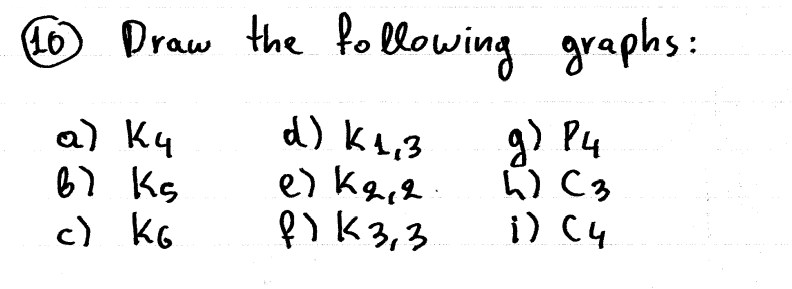 10 Draw the following graphs:
a) K4 d) K1,3 g) P4
b) K5 e) K2,2 h) C3
c) K6 f) K3,3 i) C4